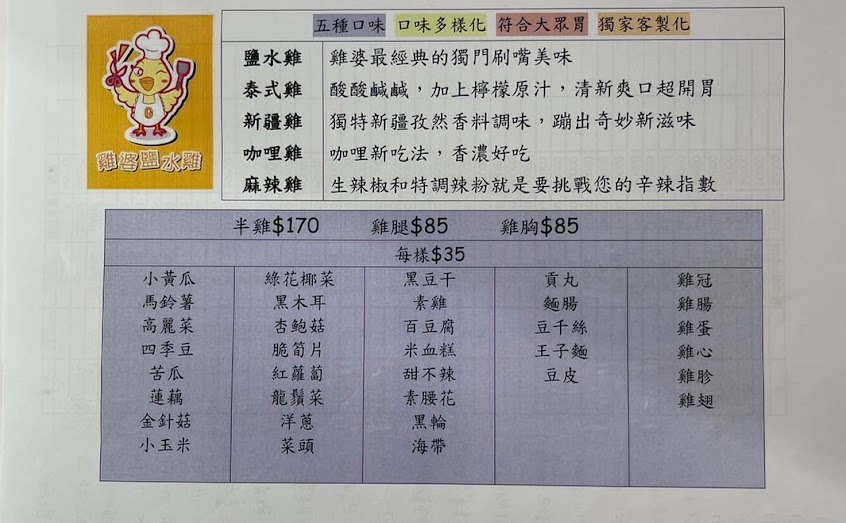 五種口味 口味多樣化 符合大眾胃 獨家客製化
雞婆鹽水雞
鹽水雞 雞婆最經典的獨門刷嘴美味
泰式雞 酸酸鹹鹹,加上檸檬原汁,清新爽口超開胃
新疆雞 獨特新疆孜然香料調味,蹦出奇妙新滋味
咖哩雞 咖哩新吃法,香濃好吃
麻辣雞 生辣椒和特調辣粉就是要挑戰您的辛辣指數
半雞$170 雞腿$85 雞胸$85
每樣$35
小黃瓜 綠花椰菜 黑豆干 貢丸 雞冠
馬鈴薯 黑木耳 素雞 麵腸 雞腸
高麗菜 杏鮑菇 百豆腐 豆干絲 雞蛋
四季豆 脆筍片 米血糕 王子麵 雞心
苦瓜 紅蘿蔔 甜不辣 豆皮 雞胗
蓮藕 龍鬚菜 素腰花 雞翅
金針菇 洋蔥 黑輪
小玉米 菜頭 海帶